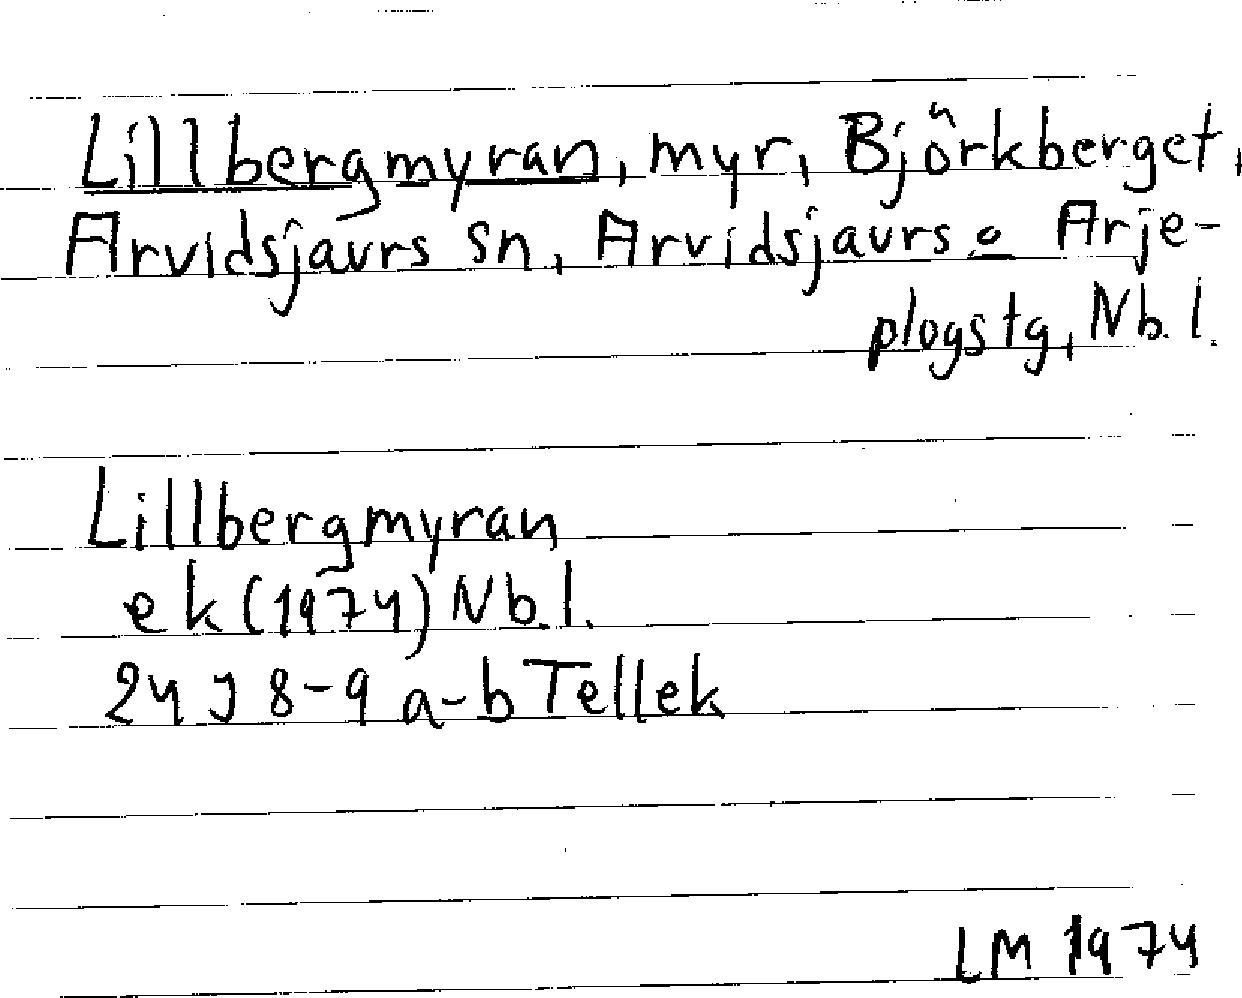 Lillbergmyran, myr, Björkberget,
Arvidsjaurs sn, Arvidsjaurs o Arje-
plogs tg, Nb. l.
Lillbergmyran
ek (1974) Nb. l.
24 J 8-9 a-b Tellek
LM 1974